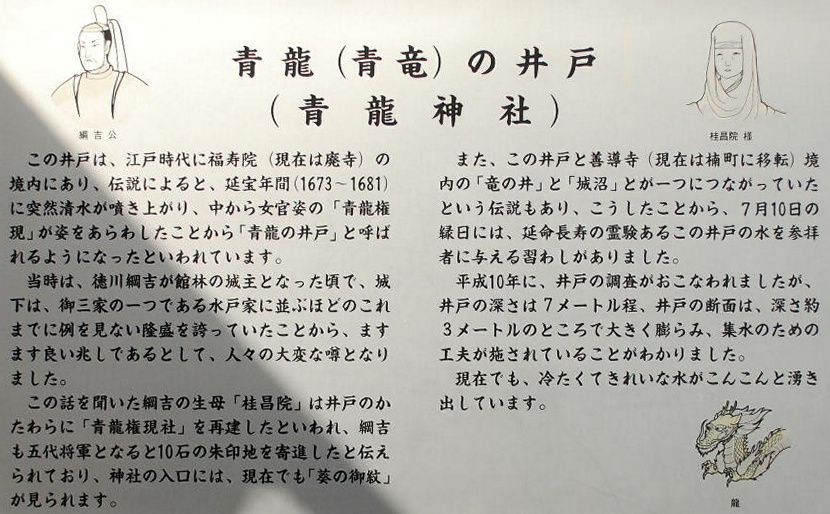 青龍（青竜）の井戸
（青龍神社）
綱吉公
桂昌院 様
この井戸は、江戸時代に福寿院（現在は廃寺）の
境内にあり、伝説によると、延宝年間（1673～1681）
に突然清水が噴き上がり、中から女官姿の「青龍権
現」が姿をあらわしたことから「青龍の井戸」と呼ば
れるようになったといわれています。
当時は、徳川綱吉が館林の城主となった頃で、城
下は、御三家の一つである水戸家に並ぶほどのこれ
までに例を見ない隆盛を誇っていたことから、ます
ます良い兆しであるとして、人々の大変な噂となり
ました。
この話を聞いた綱吉の生母「桂昌院」は井戸のか
たわらに「青龍権現社」を再建したといわれ、綱吉
も五代将軍となると10石の朱印地を寄進したと伝え
られており、神社の入口には、現在でも「葵の御紋」
が見られます。
また、この井戸と善導寺（現在は楠町に移転）境
内の「竜の井」と「城沼」とが一つにつながっていた
という伝説もあり、こうしたことから、７月10日の
縁日には、延命長寿の霊験あるこの井戸の水を参拝
者に与える習わしがありました。
平成10年に、井戸の調査がおこなわれましたが、
井戸の深さは７メートル程、井戸の断面は、深さ約
３メートルのところで大きく膨らみ、集水のための
工夫が施されていることがわかりました。
現在でも、冷たくてきれいな水がこんこんと湧き
出しています。
龍